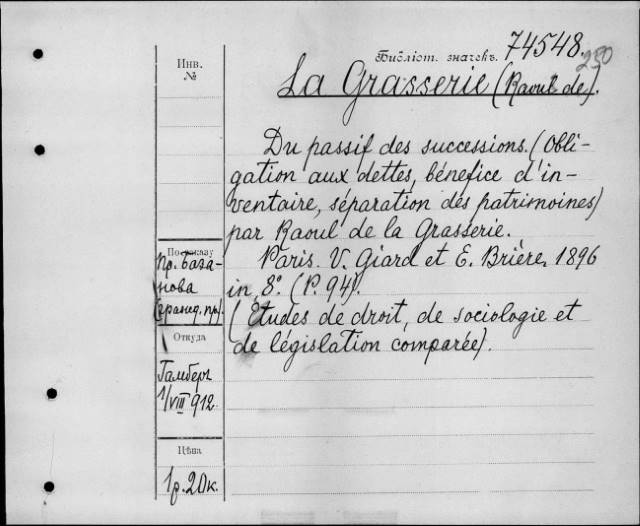 Библіот. значекъ. 74548.
230
Инв.
№
La Grasserie (Raoul de).
Du passif des successions. (Obli-
gation aux dettes, bénefice d'in-
ventaire, séparation des patrimoines)
par Raoul de la Grasserie.
Paris. V. Giard et E. Brière. 1896
in 8º (P. 94).
(Études de droit, de sociologie et
de législation comparée).
По заказу
пр. База-
нова
(гражд. пр.)
Откуда
Гамберъ
1/VIII 912.
Цѣна
1 р. 20 к.